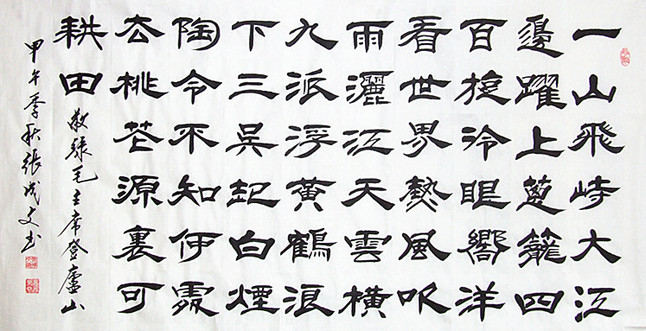 一山飛峙大江
邊躍上蔥籠四
百旋冷眼嚮洋
看世界熱風吹
雨灑江天雲橫
九派浮黃鶴浪
下三吳起白煙
陶令不知何處
去桃花源裏可
耕田
敬錄毛主席登廬山
甲午季秋張成文書